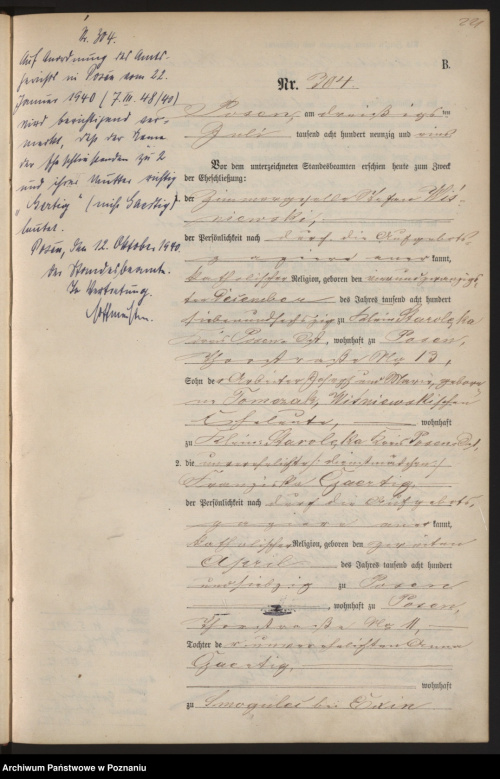 281
B.
№. 304.
Auf Anordnung des Amts-
gerichts in Posen vom 22.
Januar 1940 (7. III. 48/40)
wird berichtigend ver-
merkt, daß der Name
der Eheschließenden zu 2
und ihrer Mutter richtig
"Hertig" (nicht Gaertig)
lautet.
Posen, den 12. Oktober 1940.
Der Standesbeamte.
In Vertretung.
Nr. 304.
Posen am dreißigsten
Juli tausend acht hundert neunzig und eins
Vor dem unterzeichneten Standesbeamten erschien heute zum Zweck
der Eheschließung:
1. der Zimmergeselle Stefan Wis-
niewski,
der Persönlichkeit nach durch die Aufgebots-
papiere anerkannt,
katholischer Religion, geboren den
ten Dezember des Jahres tausend acht hundert
siebenundsechzig zu Klein Starolęka
Kreis Posen Ost, wohnhaft zu Posen,
Thorstraße Nr 13,
Sohn der Arbeiter Josef und Marie, gebore-
ne Tomczak, Wiśniewskischen
Eheleute, wohnhaft
zu Klein Starolęka Kreis Posen Ost,
2. die unverehelichte, Dienstmädchen,
Franziska Gaertig,
der Persönlichkeit nach durch die Aufgebots-
papiere anerkannt,
katholischer Religion, geboren den zweiten
April des Jahres tausend acht hundert
undsiebzig zu Posen
, wohnhaft zu Posen,
Thorstraße Nr 11,
Tochter der unverehelichten Anna
Gaertig,
wohnhaft
zu Smogulec bei Exin
Archiwum Państwowe w Poznaniu